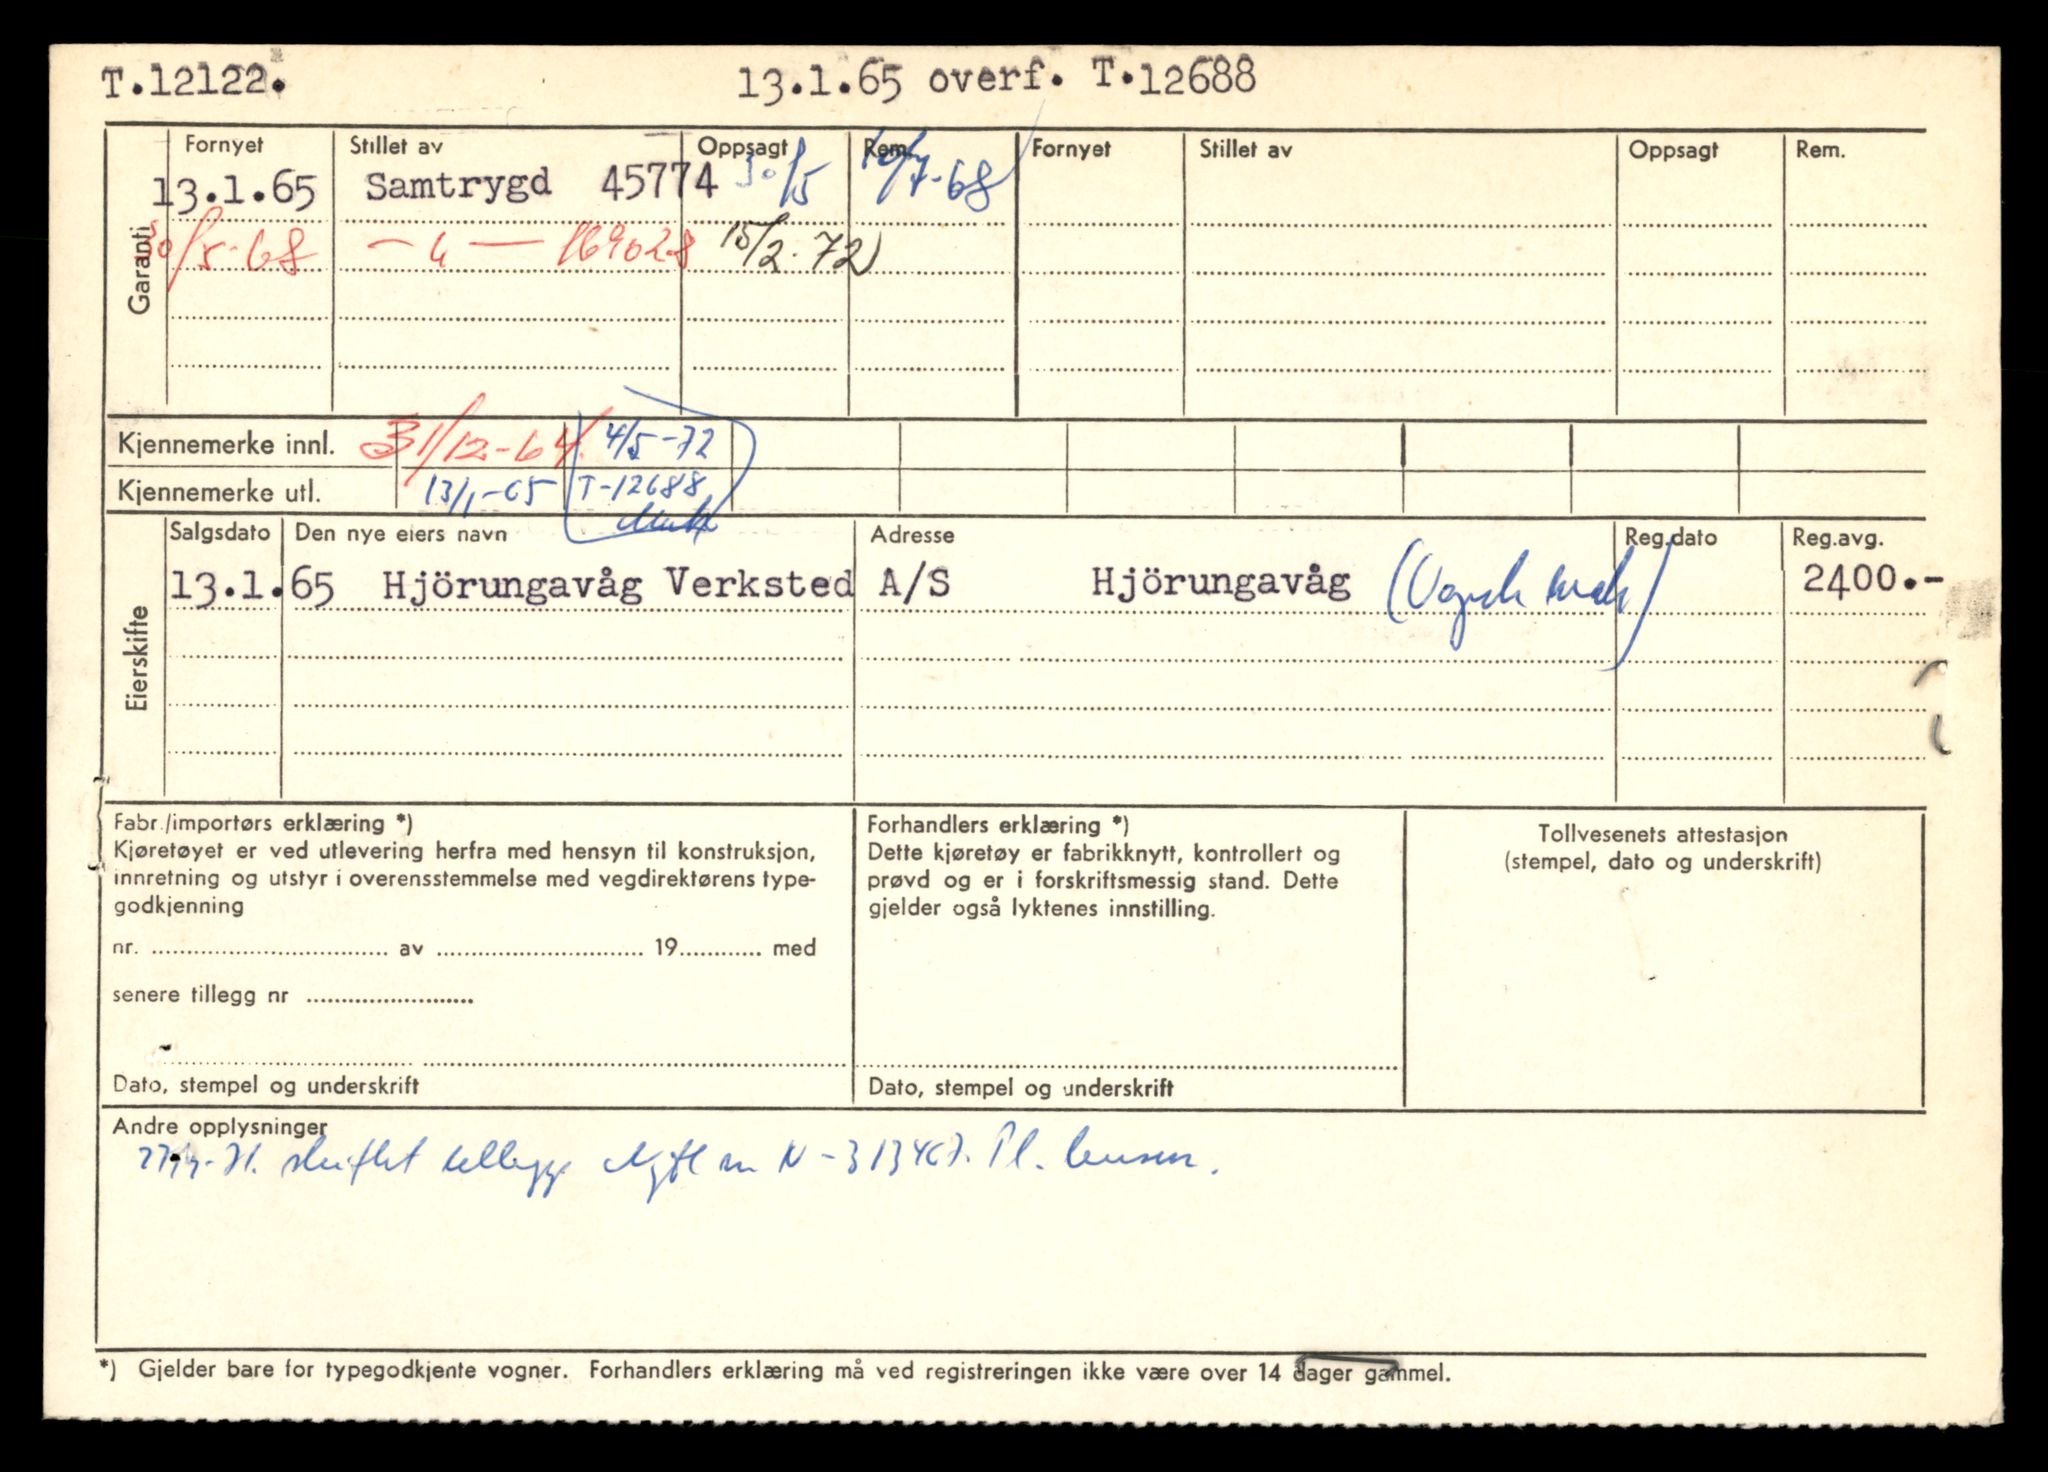 T.12122. 13.1.65 overf. T.12688
Garanti
Fornyet Stillet av Oppsagt Rem. Fornyet Stillet av Oppsagt Rem.
13.1.65 Samtrygd 45774 30/5 10/7-68
30/5-68 — " — 169028 15/2-72
Kjennemerke innl. 31/12-64 4/5-72
Kjennemerke utl. 13/1-65 T-12688
Eierskifte
Salgsdato Den nye eiers navn Adresse Reg.dato Reg.avg.
13.1.65 Hjörungavåg Verksted A/S Hjörungavåg 2400.-
Fabr./importørs erklæring *)
Kjøretøyet er ved utlevering herfra med hensyn til konstruksjon,
innretning og utstyr i overensstemmelse med vegdirektørens type-
godkjenning
nr. av 19 med
senere tillegg nr
Dato, stempel og underskrift
Forhandlers erklæring *)
Dette kjøretøy er fabrikknytt, kontrollert og
prøvd og er i forskriftsmessig stand. Dette
gjelder også lyktenes innstilling.
Dato, stempel og underskrift
Tollvesenets attestasjon
(stempel, dato og underskrift)
Andre opplysninger
*) Gjelder bare for typegodkjente vogner. Forhandlers erklæring må ved registreringen ikke være over 14 dager gammel.